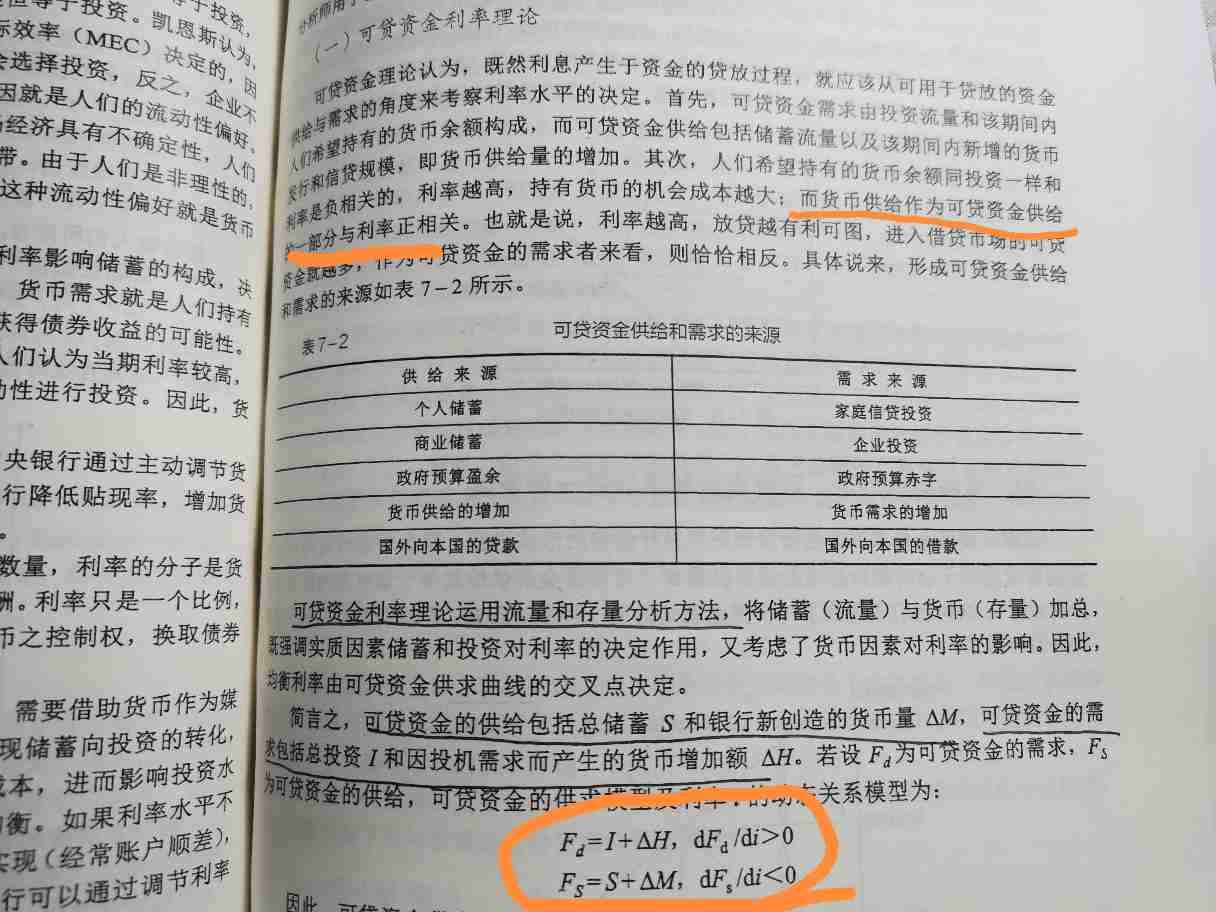 于投资,
于投资。凯恩斯认为,
际效率(MEC)决定的,因
会选择投资,反之,企业不
因就是人们的流动性偏好。
经济具有不确定性,人们
带。由于人们是非理性的,
这种流动性偏好就是货币
利率影响储蓄的构成,决
货币需求就是人们持有
获得债券收益的可能性。
人们认为当期利率较高,
性进行投资。因此,货
央银行通过主动调节货
行降低贴现率,增加货
。
数量,利率的分子是货
酬。利率只是一个比例,
币之控制权,换取债券
需要借助货币作为媒
现储蓄向投资的转化,
成本,进而影响投资水
衡。如果利率水平不
实现(经常账户顺差),
行可以通过调节利率
分析师用于
(一)可贷资金利率理论
可贷资金理论认为,既然利息产生于资金的贷放过程,就应该从可用于贷放的资金
供给与需求的角度来考察利率水平的决定。首先,可贷资金需求由投资流量和该期间内
人们希望持有的货币余额构成,而可贷资金供给包括储蓄流量以及该期间内新增的货币
发行和信贷规模,即货币供给量的增加。其次,人们希望持有的货币余额同投资一样和
利率是负相关的,利率越高,持有货币的机会成本越大;而货币供给作为可贷资金供给
的一部分与利率正相关。也就是说,利率越高,放贷越有利可图,进入借贷市场的可贷
资金就越多,作为可贷资金的需求者来看,则恰恰相反。具体说来,形成可贷资金供给
和需求的来源如表7-2所示。
表7-2 可贷资金供给和需求的来源
供给来源 需求来源
个人储蓄 家庭信贷投资
商业储蓄 企业投资
政府预算盈余 政府预算赤字
货币供给的增加 货币需求的增加
国外向本国的贷款 国外向本国的借款
可贷资金利率理论运用流量和存量分析方法,将储蓄(流量)与货币(存量)加总,
既强调实质因素储蓄和投资对利率的决定作用,又考虑了货币因素对利率的影响。因此,
均衡利率由可贷资金供求曲线的交叉点决定。
简言之,可贷资金的供给包括总储蓄 S 和银行新创造的货币量 ΔM,可贷资金的需
求包括总投资 I 和因投机需求而产生的货币增加额 ΔH。若设 F_d 为可贷资金的需求,F_S
为可贷资金的供给,可贷资金的供求模型及利率 i 的动态关系模型为:
F_d=I+ΔH, dF_d/di>0
F_S=S+ΔM, dF_s/di<0
因此,可贷资金